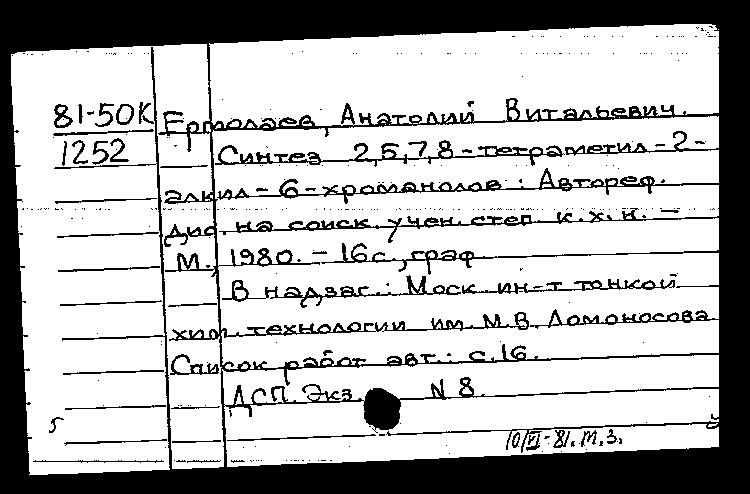 81-50К
1252
Ермолаев, Анатолий Витальевич.
Синтез 2,5,7,8-тетраметил-2-
алкил-6-хроманолов: Автореф.
дис. на соиск. учен. степ. к.х.н. –
М., 1980. – 16с., граф.
В надзаг.: Моск. ин-т тонкой
хим. технологии им. М.В. Ломоносова.
Список работ авт.: с.16.
ДСП. Экз. N 8.
5
10/VI-81. М.З.